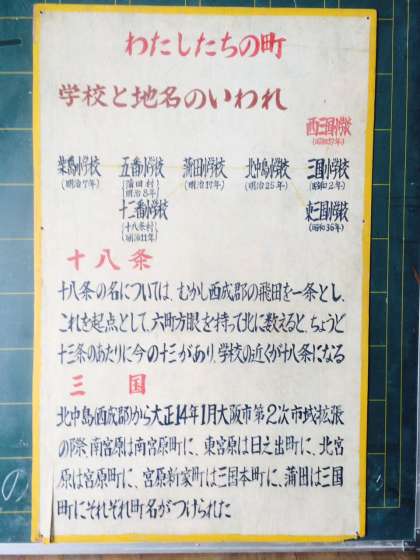 わたしたちの町
学校と地名のいわれ
西三国小学校
(昭和57年)
柴島小学校 五番小学校 蒲田小学校 北中島小学校 三国小学校
(明治7年) (蒲田村 明治8年) (明治17年) (明治25年) (昭和2年)
十二番小学校 東三国小学校
(十八条村 明治11年) (昭和36年)
十八条
十八条の名については、むかし西成郡の飛田を一条とし、
これを起点として、六町方眼を持って北に数えると、ちょうど
十三条のあたりに今の十三があり、学校の近くが十八条になる
三国
北中島(西成郡)から大正14年1月大阪市第2次市域拡張
の際、南宮原は南宮原町に、東宮原は日之出町に、北宮
原は宮原町に、宮原新家町は三国本町に、蒲田は三国
町にそれぞれ町名がつけられた